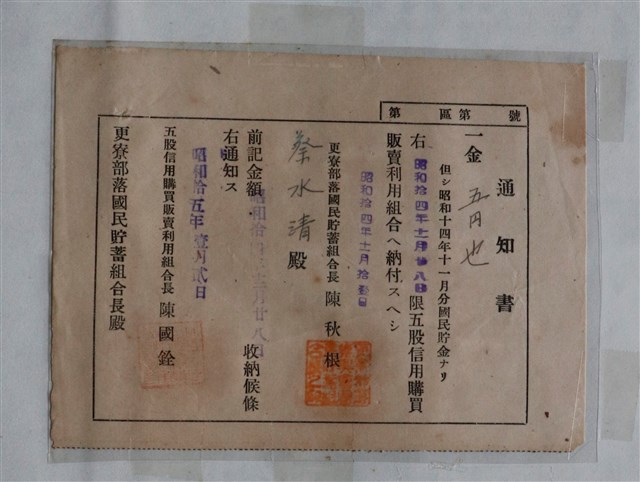 第　區　第　號
通知書
一金 五円也
但シ昭和十四年十一月分國民貯金ナリ
右昭和拾四年十一月廿八日限五股信用購買
販賣利用組合ヘ納付スヘシ
昭和拾四年十一月拾壹日
更寮部落國民貯蓄組合長 陳秋根
蔡水清殿
前記金額昭和拾四年十一月廿八日收納候條
右通知ス
昭和拾五年壹月貳日
五股信用購買販賣利用組合長 陳國銓
更寮部落國民貯蓄組合長殿